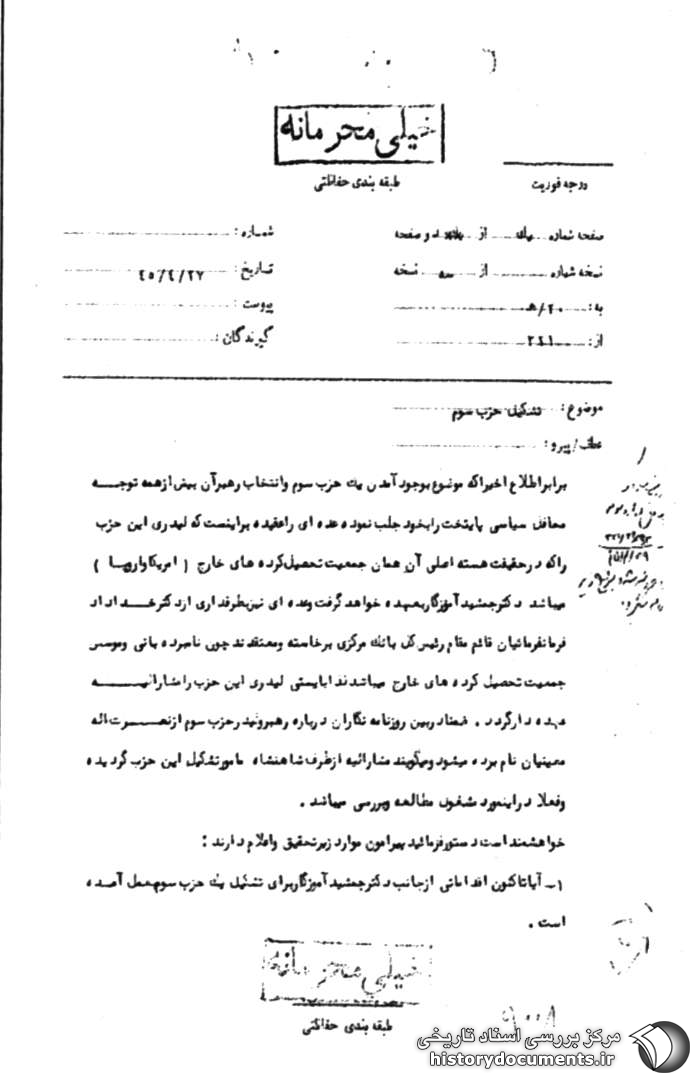 خیلی محرمانه
طبقه بندی حفاظتی
درجه فوریت
صفحه شماره یک از صفحه
شماره :
نسخه شماره از نسخه
تاریخ : ٤٥/٤/٢٧
به : ٢٠/هـ
پیوست :
از : ٢٤١
گیرندگان :
موضوع : تشکیل حزب سوم
عطف/پیرو :
برابر اطلاع اخیرا که موضوع بوجود آمدن یک حزب سوم و انتخاب رهبر آن بیش از همه توجه
محافل سیاسی پایتخت را بخود جلب نموده عده ای را عقیده براینست که لیدری این حزب
را که در حقیقت هسته اصلی آن همان جمعیت تحصیل کرده های خارج ( امریکا واروپا )
میباشد دکتر جمشید آموزگار بعهده خواهد گرفت وعده ای نیز بطرفداری از دکتر خداداد
فرمانفرمائیان قائم مقام رئیس کل بانک مرکزی برخاسته ومعتقدند چون نامبرده بانی وموسس
جمعیت تحصیل کرده های خارج میباشد لذا بایستی لیدری این حزب را مشارالیه
عهده دار گردد . ضمنا در بین روزنامه نگاران درباره رهبر ولیدر حزب سوم از نصرت اله
معینیان نام برده میشود ومیگویند مشارالیه ازطرف شاهنشاه مامور تشکیل این حزب گردیده
وفعلا در اینمورد مشغول مطالعه وبررسی میباشد .
خواهشمند است دستور فرمائید پیرامون موارد زیر تحقیق واعلام دارند :
١- آیا تاکنون اقداماتی ازجانب دکتر جمشید آموزگار برای تشکیل یک حزب سوم بعمل آمده
است .
خیلی محرمانه
طبقه بندی حفاظتی
مرکز بررسی اسناد تاریخی
historydocuments.ir